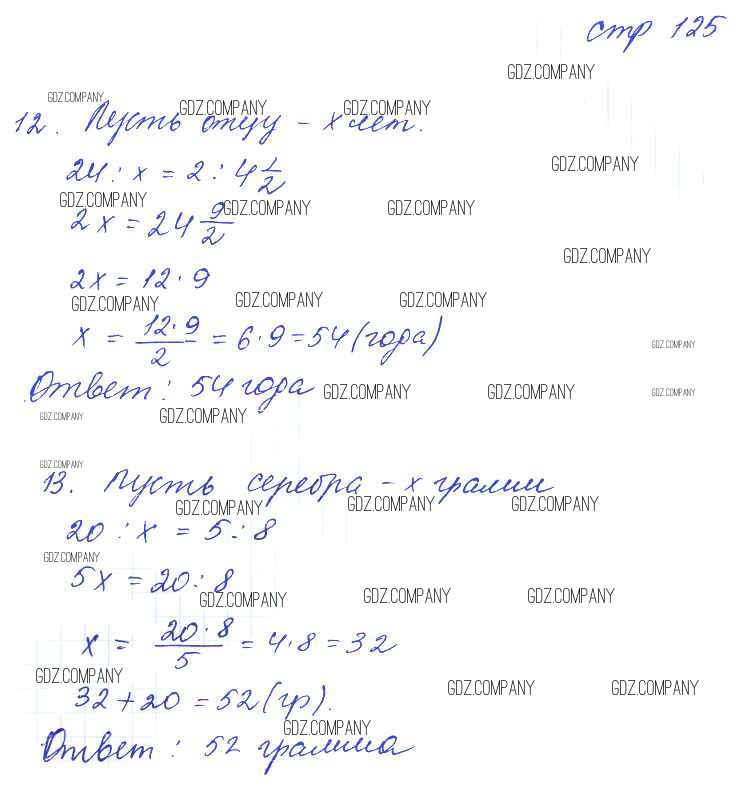 стр 125
GDZ.COMPANY
GDZ.COMPANY
GDZ.COMPANY GDZ.COMPANY
12. Пусть отцу – x лет.
GDZ.COMPANY
24 : x = 2 : 4 1/2
GDZ.COMPANY GDZ.COMPANY GDZ.COMPANY
2x = 24 9/2
GDZ.COMPANY
2x = 12 · 9
GDZ.COMPANY GDZ.COMPANY GDZ.COMPANY
x = 12·9/2 = 6·9 = 54 (года)
GDZ.COMPANY
Ответ : 54 года GDZ.COMPANY GDZ.COMPANY GDZ.COMPANY
GDZ.COMPANY GDZ.COMPANY
GDZ.COMPANY
13. Пусть серебра – x грамм
GDZ.COMPANY GDZ.COMPANY GDZ.COMPANY
20 : x = 5 : 8
GDZ.COMPANY
5x = 20 : 8
GDZ.COMPANY GDZ.COMPANY GDZ.COMPANY
x = 20·8/5 = 4·8 = 32
GDZ.COMPANY GDZ.COMPANY GDZ.COMPANY
32 + 20 = 52 (гр).
GDZ.COMPANY
Ответ : 52 грамма